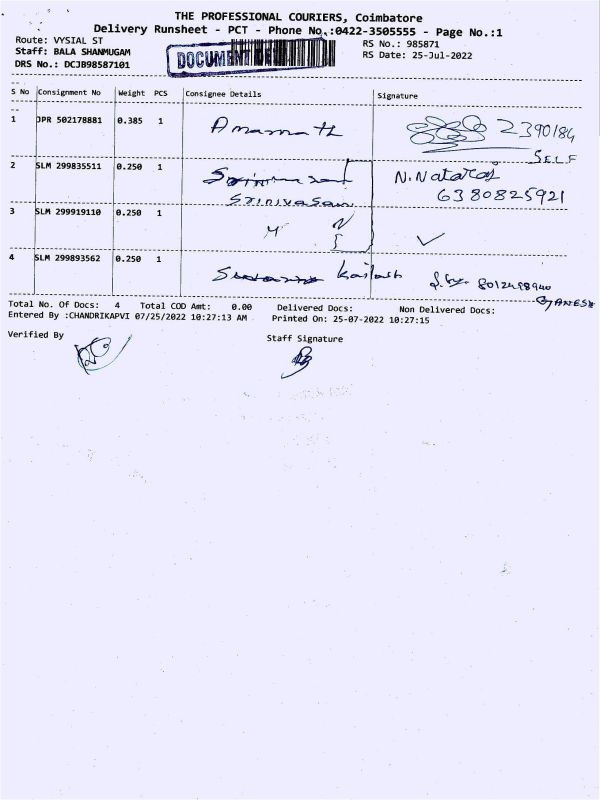 THE PROFESSIONAL COURIERS, Coimbatore
Delivery Runsheet - PCT - Phone No.:0422-3505555 - Page No.:1
Route: VYSIAL ST
Staff: BALA SHANMUGAM
DRS No.: DCJB98587101
DOCUMENT
RS No.: 985871
RS Date: 25-Jul-2022
S No Consignment No Weight PCS Consignee Details Signature
1 JPR 502178881 0.385 1 Amarnath 2390184
SELF
2 SLM 299835511 0.250 1 N.Nataraj
Srinivasan 6380825921
3 SLM 299919110 0.250 1
4 SLM 299893562 0.250 1 Kailash 8012498940
GANESH
Total No. Of Docs: 4 Total COD Amt: 0.00 Delivered Docs: Non Delivered Docs:
Entered By :CHANDRIKAPVI 07/25/2022 10:27:13 AM Printed On: 25-07-2022 10:27:15
Verified By Staff Signature